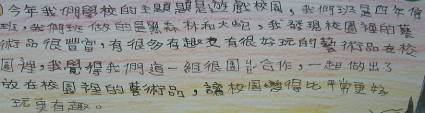 今年我們學校的主題是遊戲校園，我們班是四年孝
班，我們班做的是羅森林和大蛇，我發現校園裡的藝
術品很豐富，有很多有趣又有很好玩的藝術品在校
園裡，我覺得我們這一組很團結合作，一起做出了
放在校園裡的藝術品，讓校園變得比平常更好
玩更有趣。